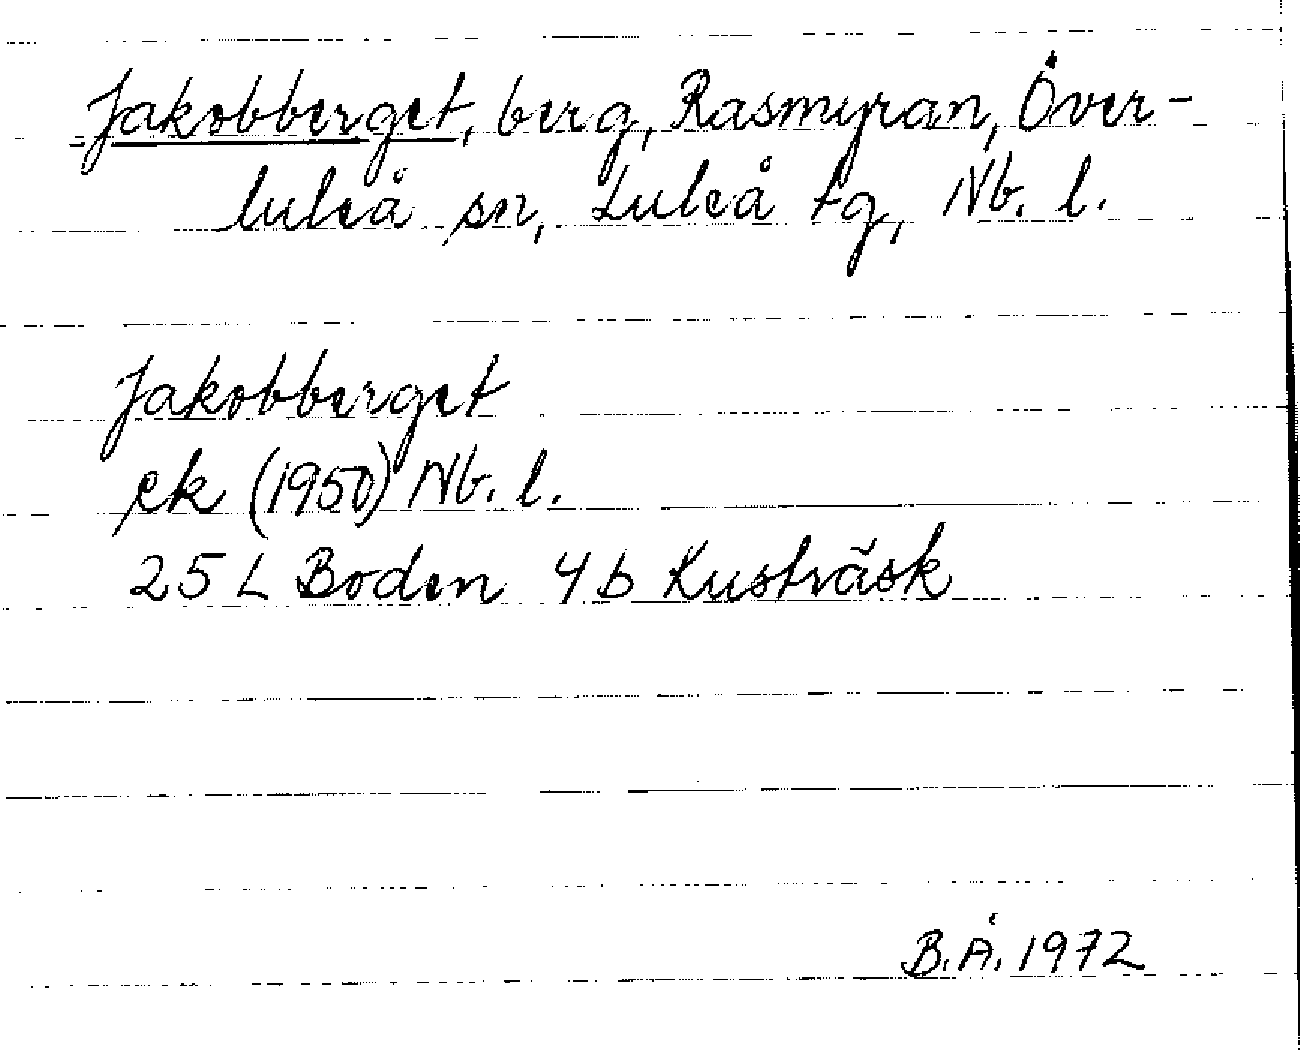 Jakobberget, berg, Rasmyran, Över-
luleå sn, Luleå tg, Nb. l.
Jakobberget
ek (1950) Nb. l.
25 L Boden 4 b Kusträsk
B.Å. 1972